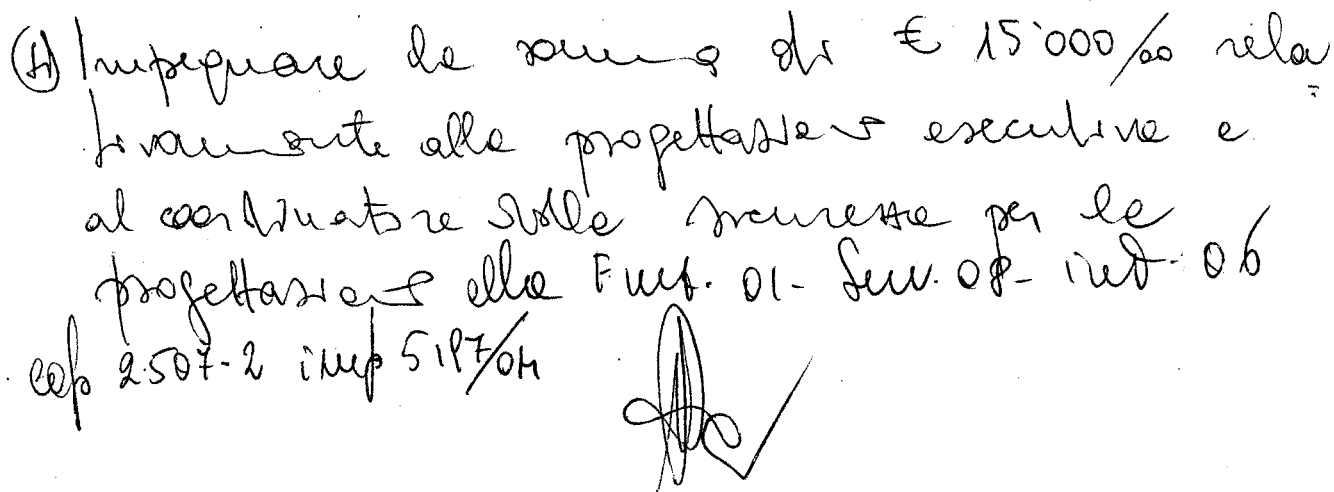 4) Impegnare la somma di € 15'000/00 rela
tivamente alla progettazione esecutiva e
al coordinatore sulla sicurezza per la
progettazione alla Funz. 01- Serv. 08- int. 06
cap 2507-2 imp 5197/04